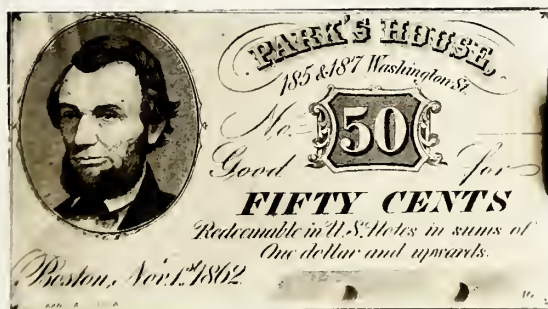 PARK'S HOUSE,
185 & 187 Washington St.
No.
50
Good for
FIFTY CENTS
Redeemable in U.S. Notes in sums of
One dollar and upwards.
Boston, Nov. 1st 1862.